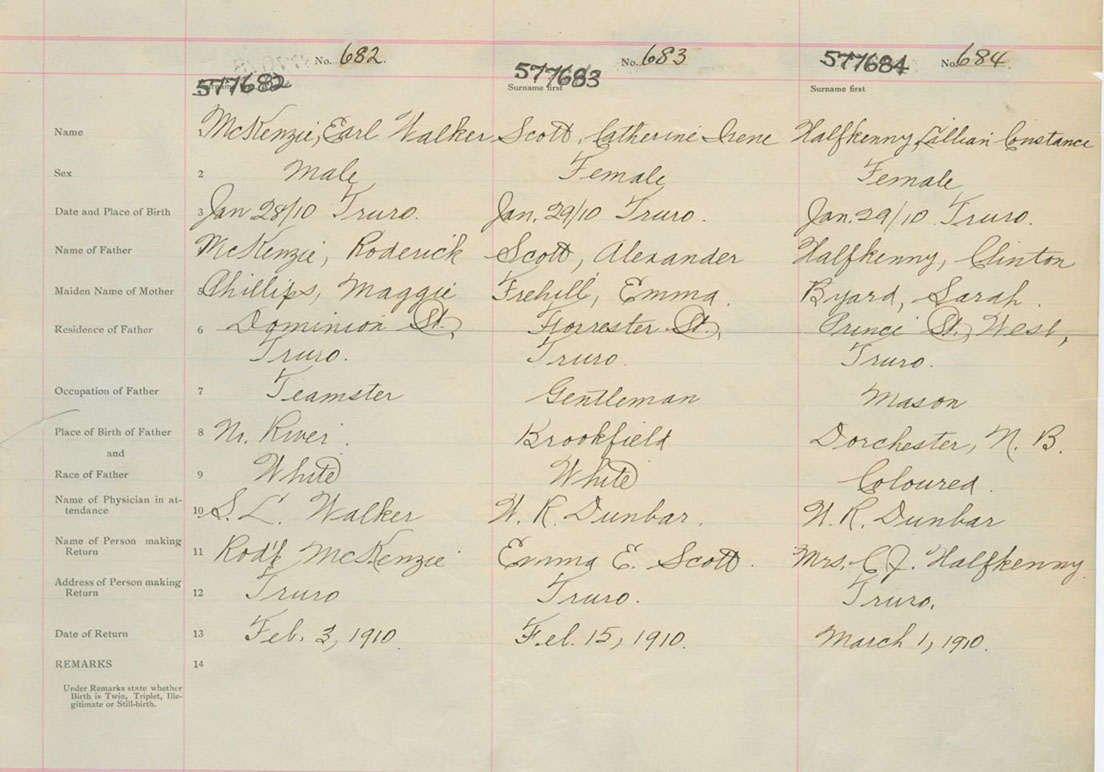 No. 682. No. 683 No. 684.
577682 577683 577684
Surname first Surname first
Name 1 McKenzie, Earl Walker Scott, Catherine Irene Halfkenny, Lillian Constance
Sex 2 Male Female Female
Date and Place of Birth 3 Jan 28/10 Truro. Jan. 29/10 Truro. Jan. 29/10 Truro.
Name of Father McKenzie, Roderick Scott, Alexander Halfkenny, Clinton
Maiden Name of Mother 5 Phillips, Maggie Frehill, Emma. Byard, Sarah.
Residence of Father 6 Dominion St., Forrester St., Prince St. West,
Truro. Truro. Truro.
Occupation of Father 7 Teamster Gentleman Mason
Place of Birth of Father 8 N. River. Brookfield Dorchester, N. B.
and
Race of Father 9 White White Coloured.
Name of Physician in at-
tendance 10 S. L. Walker W. R. Dunbar. W. R. Dunbar
Name of Person making
Return 11 Rod'k McKenzie Emma E. Scott. Mrs. C. J. Halfkenny
Address of Person making
Return 12 Truro Truro. Truro.
Date of Return 13 Feb. 3, 1910. Feb. 15, 1910. March 1, 1910.
REMARKS 14
Under Remarks state whether
Birth is Twin, Triplet, Ille-
gitimate or Still-birth.